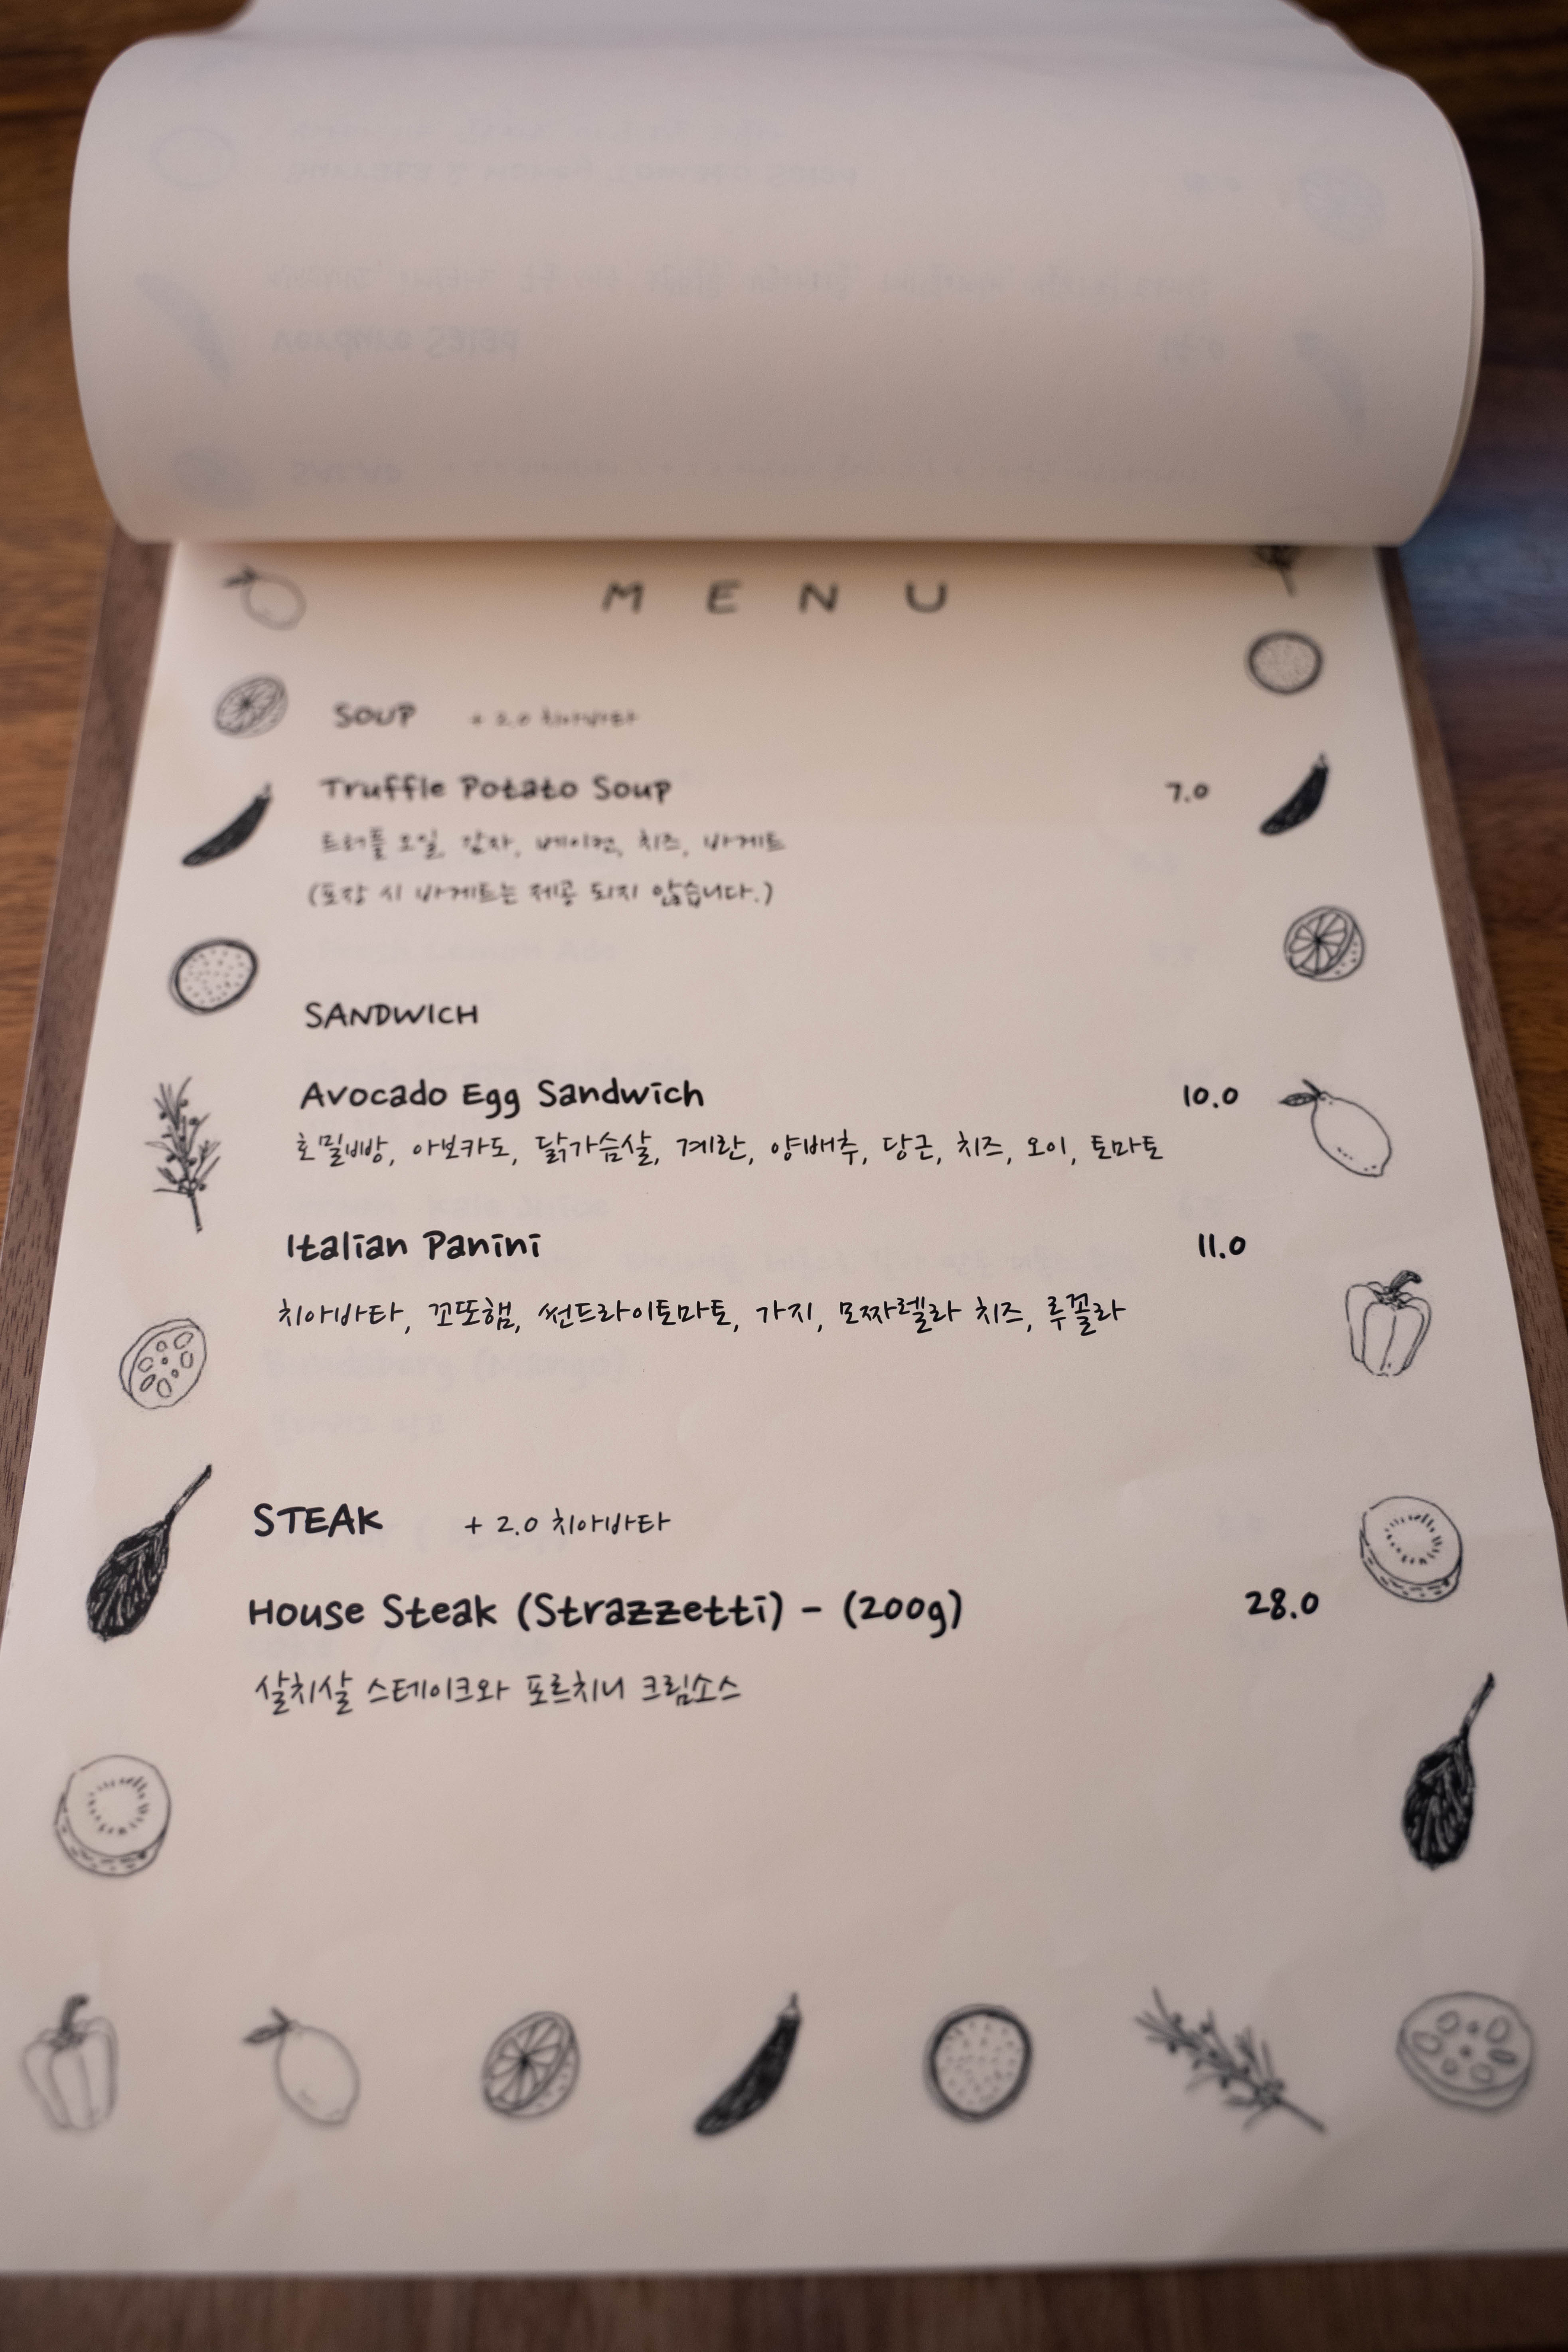 MENU
SOUP + 2.0 치아바타
Truffle Potato Soup 7.0
트러플 오일, 감자, 베이컨, 치즈, 바게트
(포장 시 바게트는 제공 되지 않습니다.)
SANDWICH
Avocado Egg Sandwich 10.0
호밀빵, 아보카도, 닭가슴살, 계란, 양배추, 당근, 치즈, 오이, 토마토
Italian Panini 11.0
치아바타, 꼬또햄, 썬드라이토마토, 가지, 모짜렐라 치즈, 루꼴라
STEAK + 2.0 치아바타
House Steak (Strazzetti) - (200g) 28.0
살치살 스테이크와 포르치니 크림소스